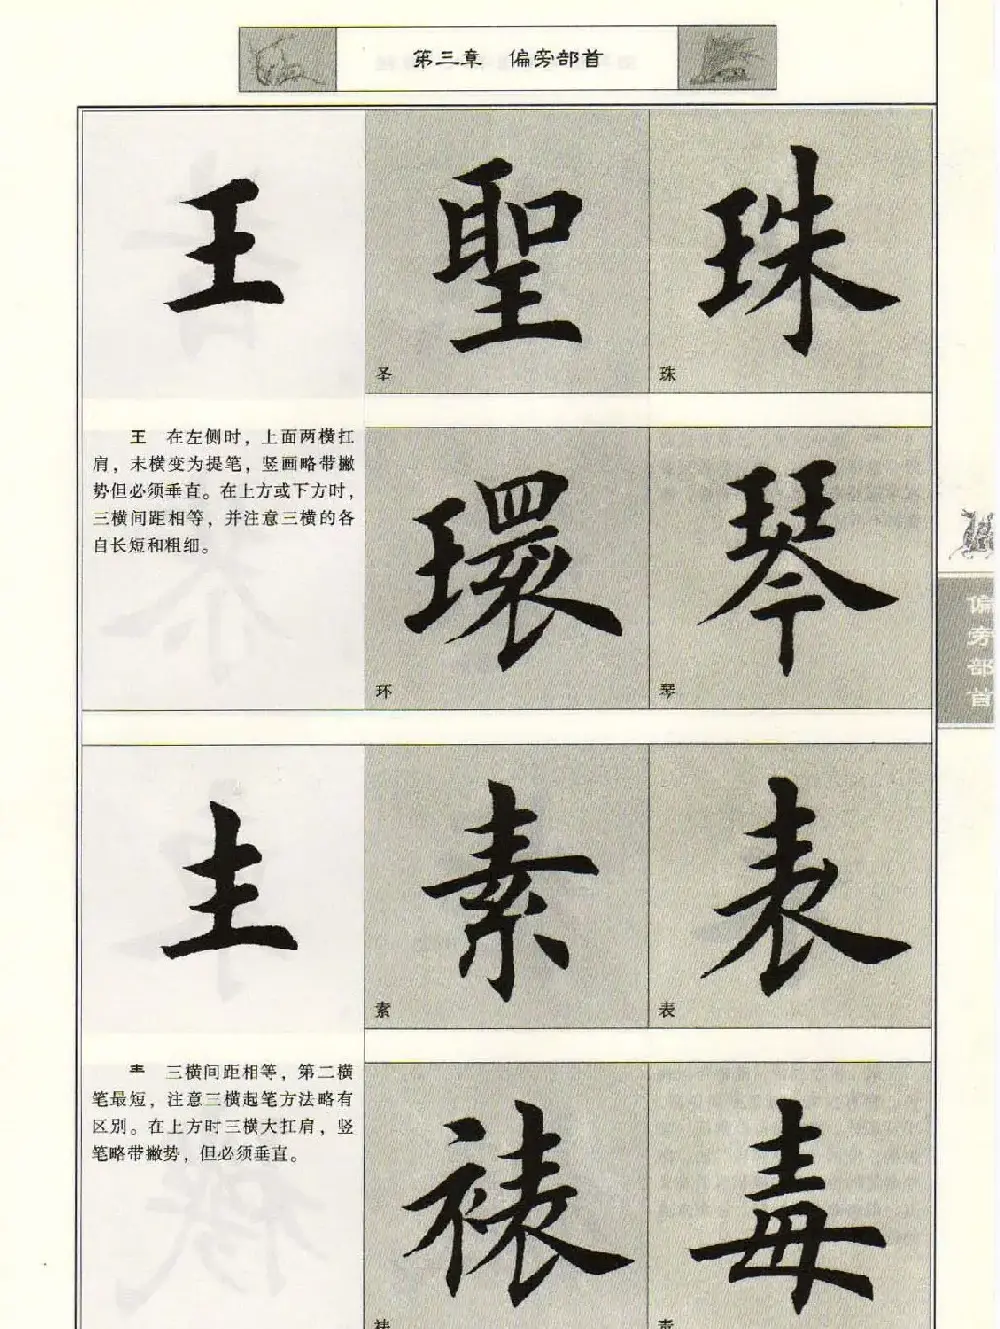 第三章 偏旁部首
王
聖
珠
圣
珠
王 在左侧时，上面两横扛
肩，末横变为提笔，竖画略带撇
势但必须垂直。在上方或下方时，
三横间距相等，并注意三横的各
自长短和粗细。
環
琴
环
琴
偏旁部首
龶
素
表
素
表
龶 三横间距相等，第二横
笔最短，注意三横起笔方法略有
区别。在上方时三横大扛肩，竖
笔略带撇势，但必须垂直。
裱
毒